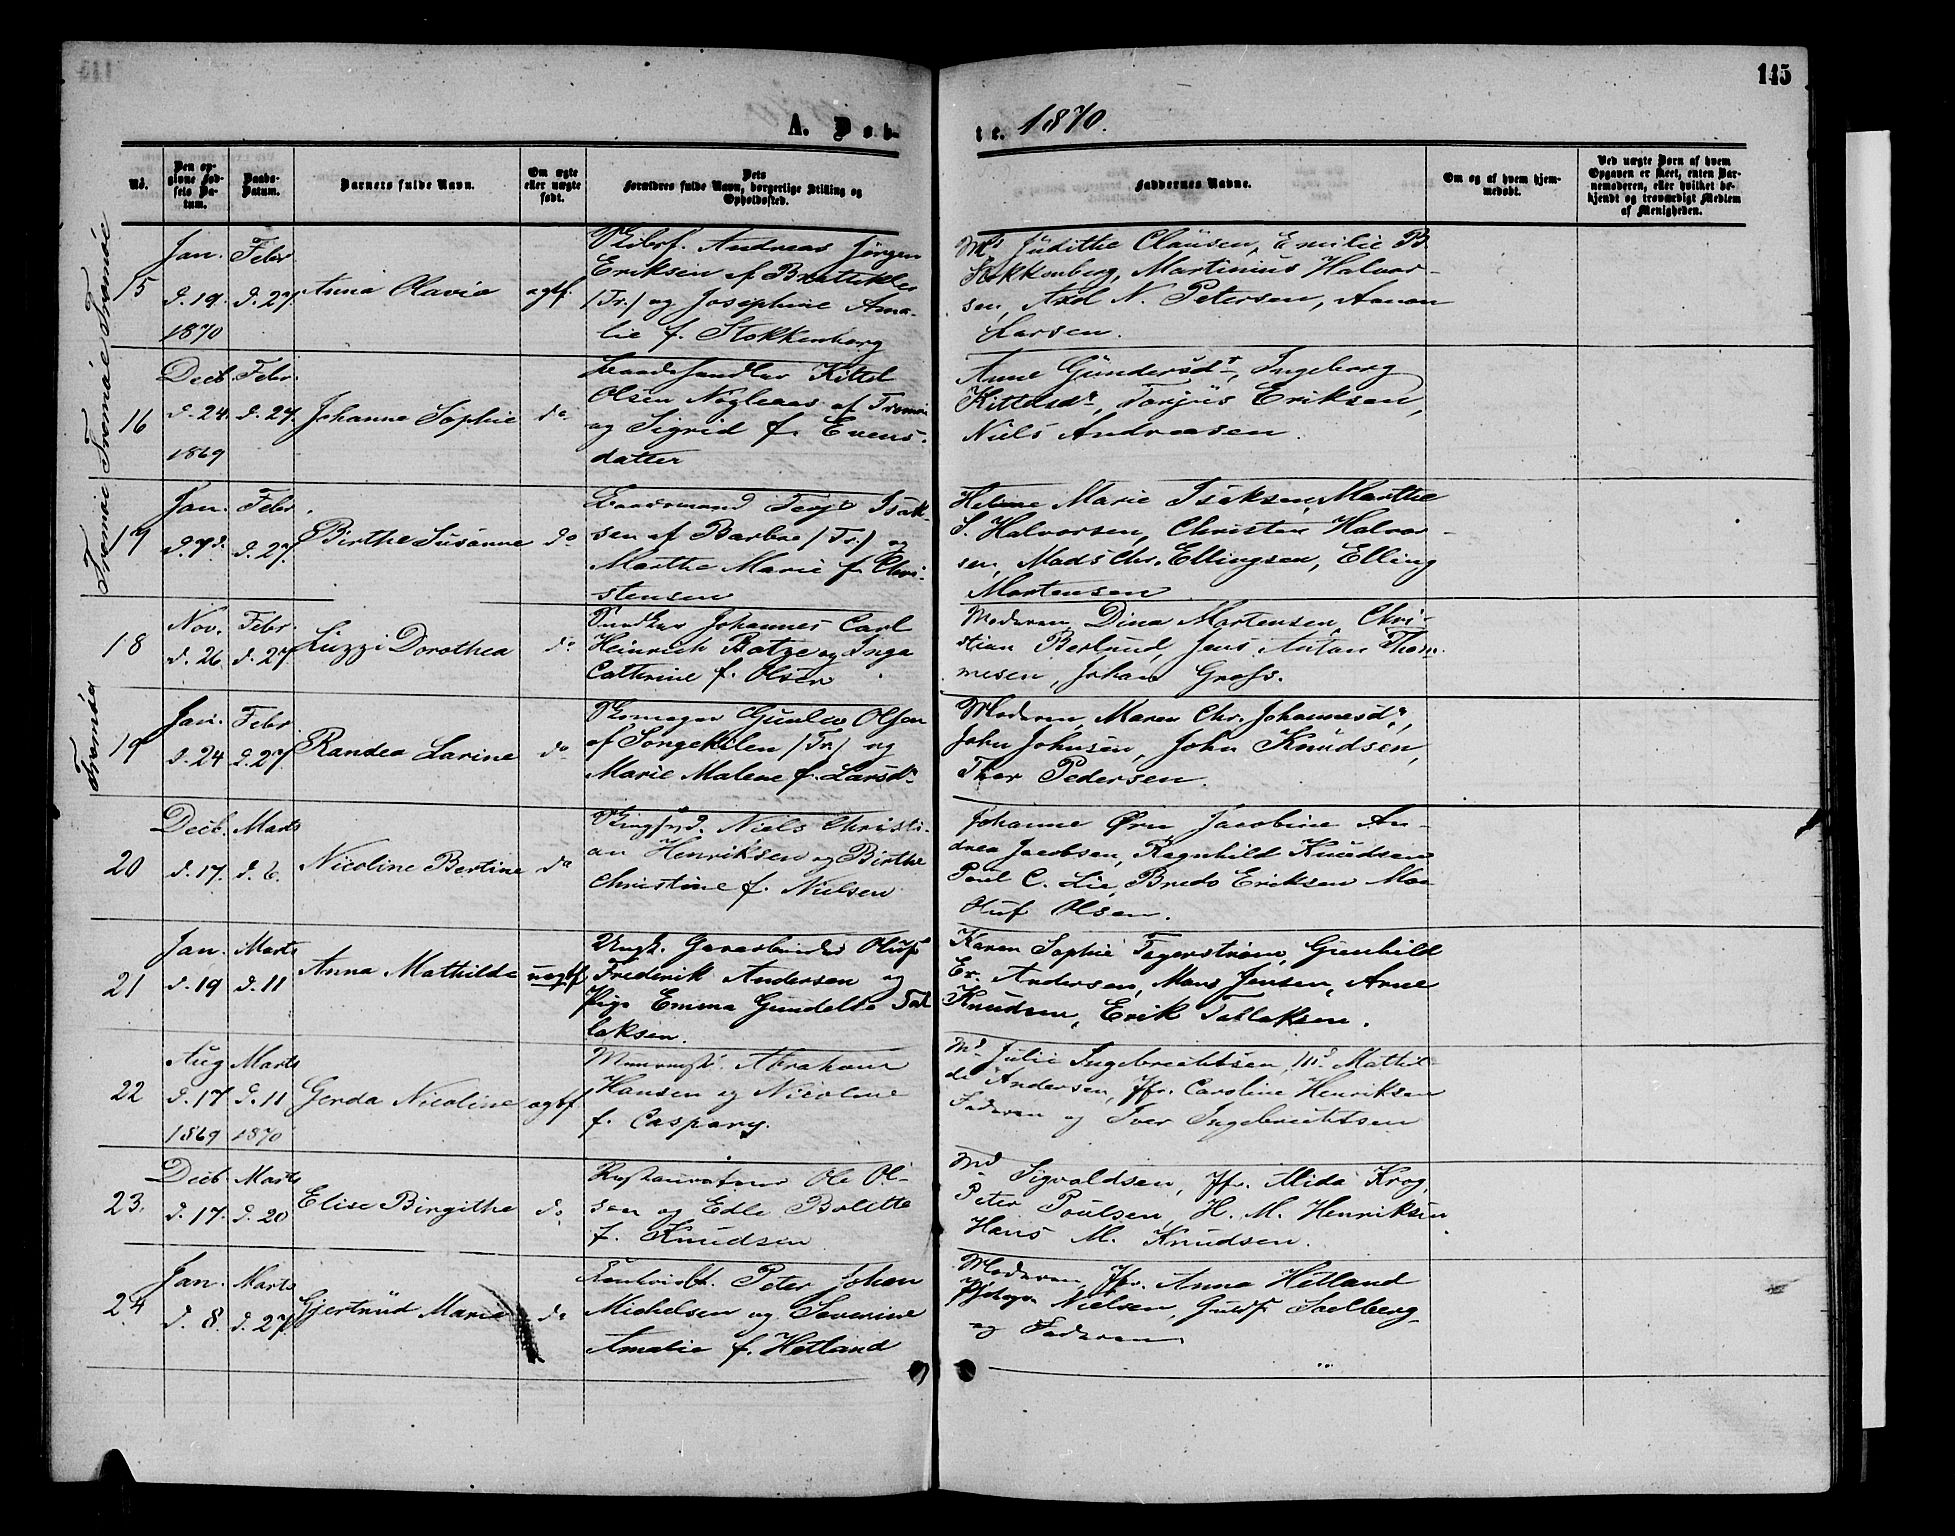 145
A. Døb-
te. 1870.
No.
Den op-
givne Fød-
sels Da-
tum.
Daabs-
Datum.
Barnets fulde Navn.
Om ægte
eller uægte
født.
Dets
Forældres fulde Navn, borgerlige Stilling og
Opholdssted.
Faddernes Navne.
Om og af hvem hjem-
medøbt.
Ved uægte Børn af hvem
Opgaven er skeet, enten Bar-
nemoderen, eller hvilket be-
kjendt og troværdigt Medlem
af Menigheden.
Tromöe
15
Jan.
d. 19.
1870
Febr
d. 27.
Anna Olavia
ægtf.
Skibsf. Andreas Jørgen
Eriksen af Brattekley
(Tr.) og Josephine Ama-
lie f. Stokkenberg
Md Judithe Clausen, Emilie B
Stokkenberg, Martinius Halvor-
sen, Axel N. Petersen, Aanon
Larsen.
Tromöe
16
Decb.
d. 24.
1869
Febr.
d. 27.
Johanne Sophie
do
Kittel
Olsen af Tromöe
og Sigrid f. Evens-
datter
Anne Gundersdr, Ingeborg
Kittelsdr, Torjus Eriksen,
Niels Andreasen.
Tromöe
17
Jan.
d. 7d.
Febr.
d. 27.
Birthe Susanne
do
Baadsmand Terje Isak-
sen af Barboe (Tr.) og
Marthe Marie f. Chri-
stensen
Helene Marie Isaksen, Marthe
S. Halvorsen, Christen Halvor-
sen, Mads Chr. Ellingsen, Elling
Mortensen
18
Nov.
d. 26.
Febr.
d. 27.
Luzzi Dorothea
do
Johannes Carl
Heinrich Batze og Inga
Cathrine f. Olsen
Moderen, Dina Mortensen, Chri-
stian Berlund, Jens Anton Thom-
mesen, Johan Gross.
Tromöe
19
Jan.
d. 24
Febr
d. 27.
Randea Larine
do
Skomager Gunleo Olsen
af Songekilen (Tr.) og
Marie Malene f. Larsdr
Moderen, Maren Chr. Johannesdr,
John Johnsen, John Knudsen,
Thor Pedersen.
20
Decb.
d. 17.
Marts
d. 6.
Nicoline Bertine
do
Niels Christi-
an Henriksen og Birthe
Christine f. Nielsen
Johanne Ørn, Jacobine An-
drea Jacobsen, Ragnhild Knudsen
Poul C. Lie, Bredo Eriksen Moe
Oluf Olsen.
21
Jan.
d. 19
Marts
d. 11
Anna Mathilde
uægtf
Ungk. Garverbunder Oluf
Frederik Andersen og
Pige Emma Gundelle Tal
laksen.
Karen Sophie Fagerstrøm, Gunhild
Er. Andersen, Mons Jensen, Arne
Knudsen, Erik Tallaksen.
22
Aug
d. 17
1869
Marts
d. 11
1870
Gerda Nicoline
ægtf
Abraham
Hansen og Nicoline
f. Caspary.
Md Julie Ingebrechtsen, Md Mathil-
de Andersen, Jfr. Caroline Henriksen
Faderen og Iver Ingebrechtsen
23.
Decb.
d. 17.
Marts
d. 20
Elise Birgithe
do
Restaurateur Ole Ol-
sen og Edle Bolette
f. Knudsen
Md Sigvaldsen, Jfr. Alida Krog,
Peter Poulsen, H. M. Henriksen
Hans M. Knudsen.
24
Jan.
d. 8.
Marts
d. 27.
Gjertrud Marie
do
Peter Johan
Michelsen og Severine
Amalie f. Hetland
Moderen, Jfr. Anna Hetland
Nielsen, Guldf. Soelberg
og Faderen